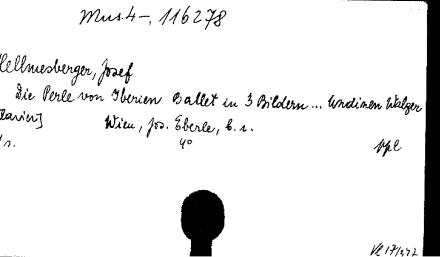 Mus. 4-, 116278
Hellmesberger, Josef
Die Perle von Iberien Ballet in 3 Bildern... Undinen Walzer
[Klavier]
Wien, Jos. Eberle, b. s.
4°